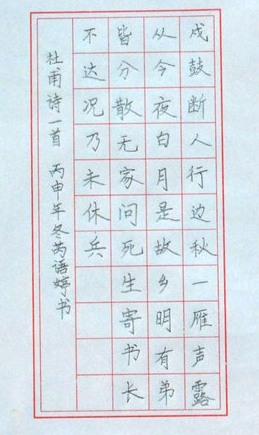 戍鼓断人行边秋一雁声露
从今夜白月是故乡明有弟
皆分散无家问死生寄书长
不达况乃未休兵
杜甫诗一首 丙申年冬芮语婷书